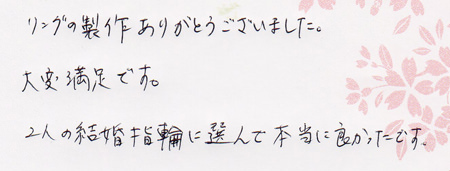 リングの製作ありがとうございました。
大変満足です。
2人の結婚指輪に選んで本当に良かったです。